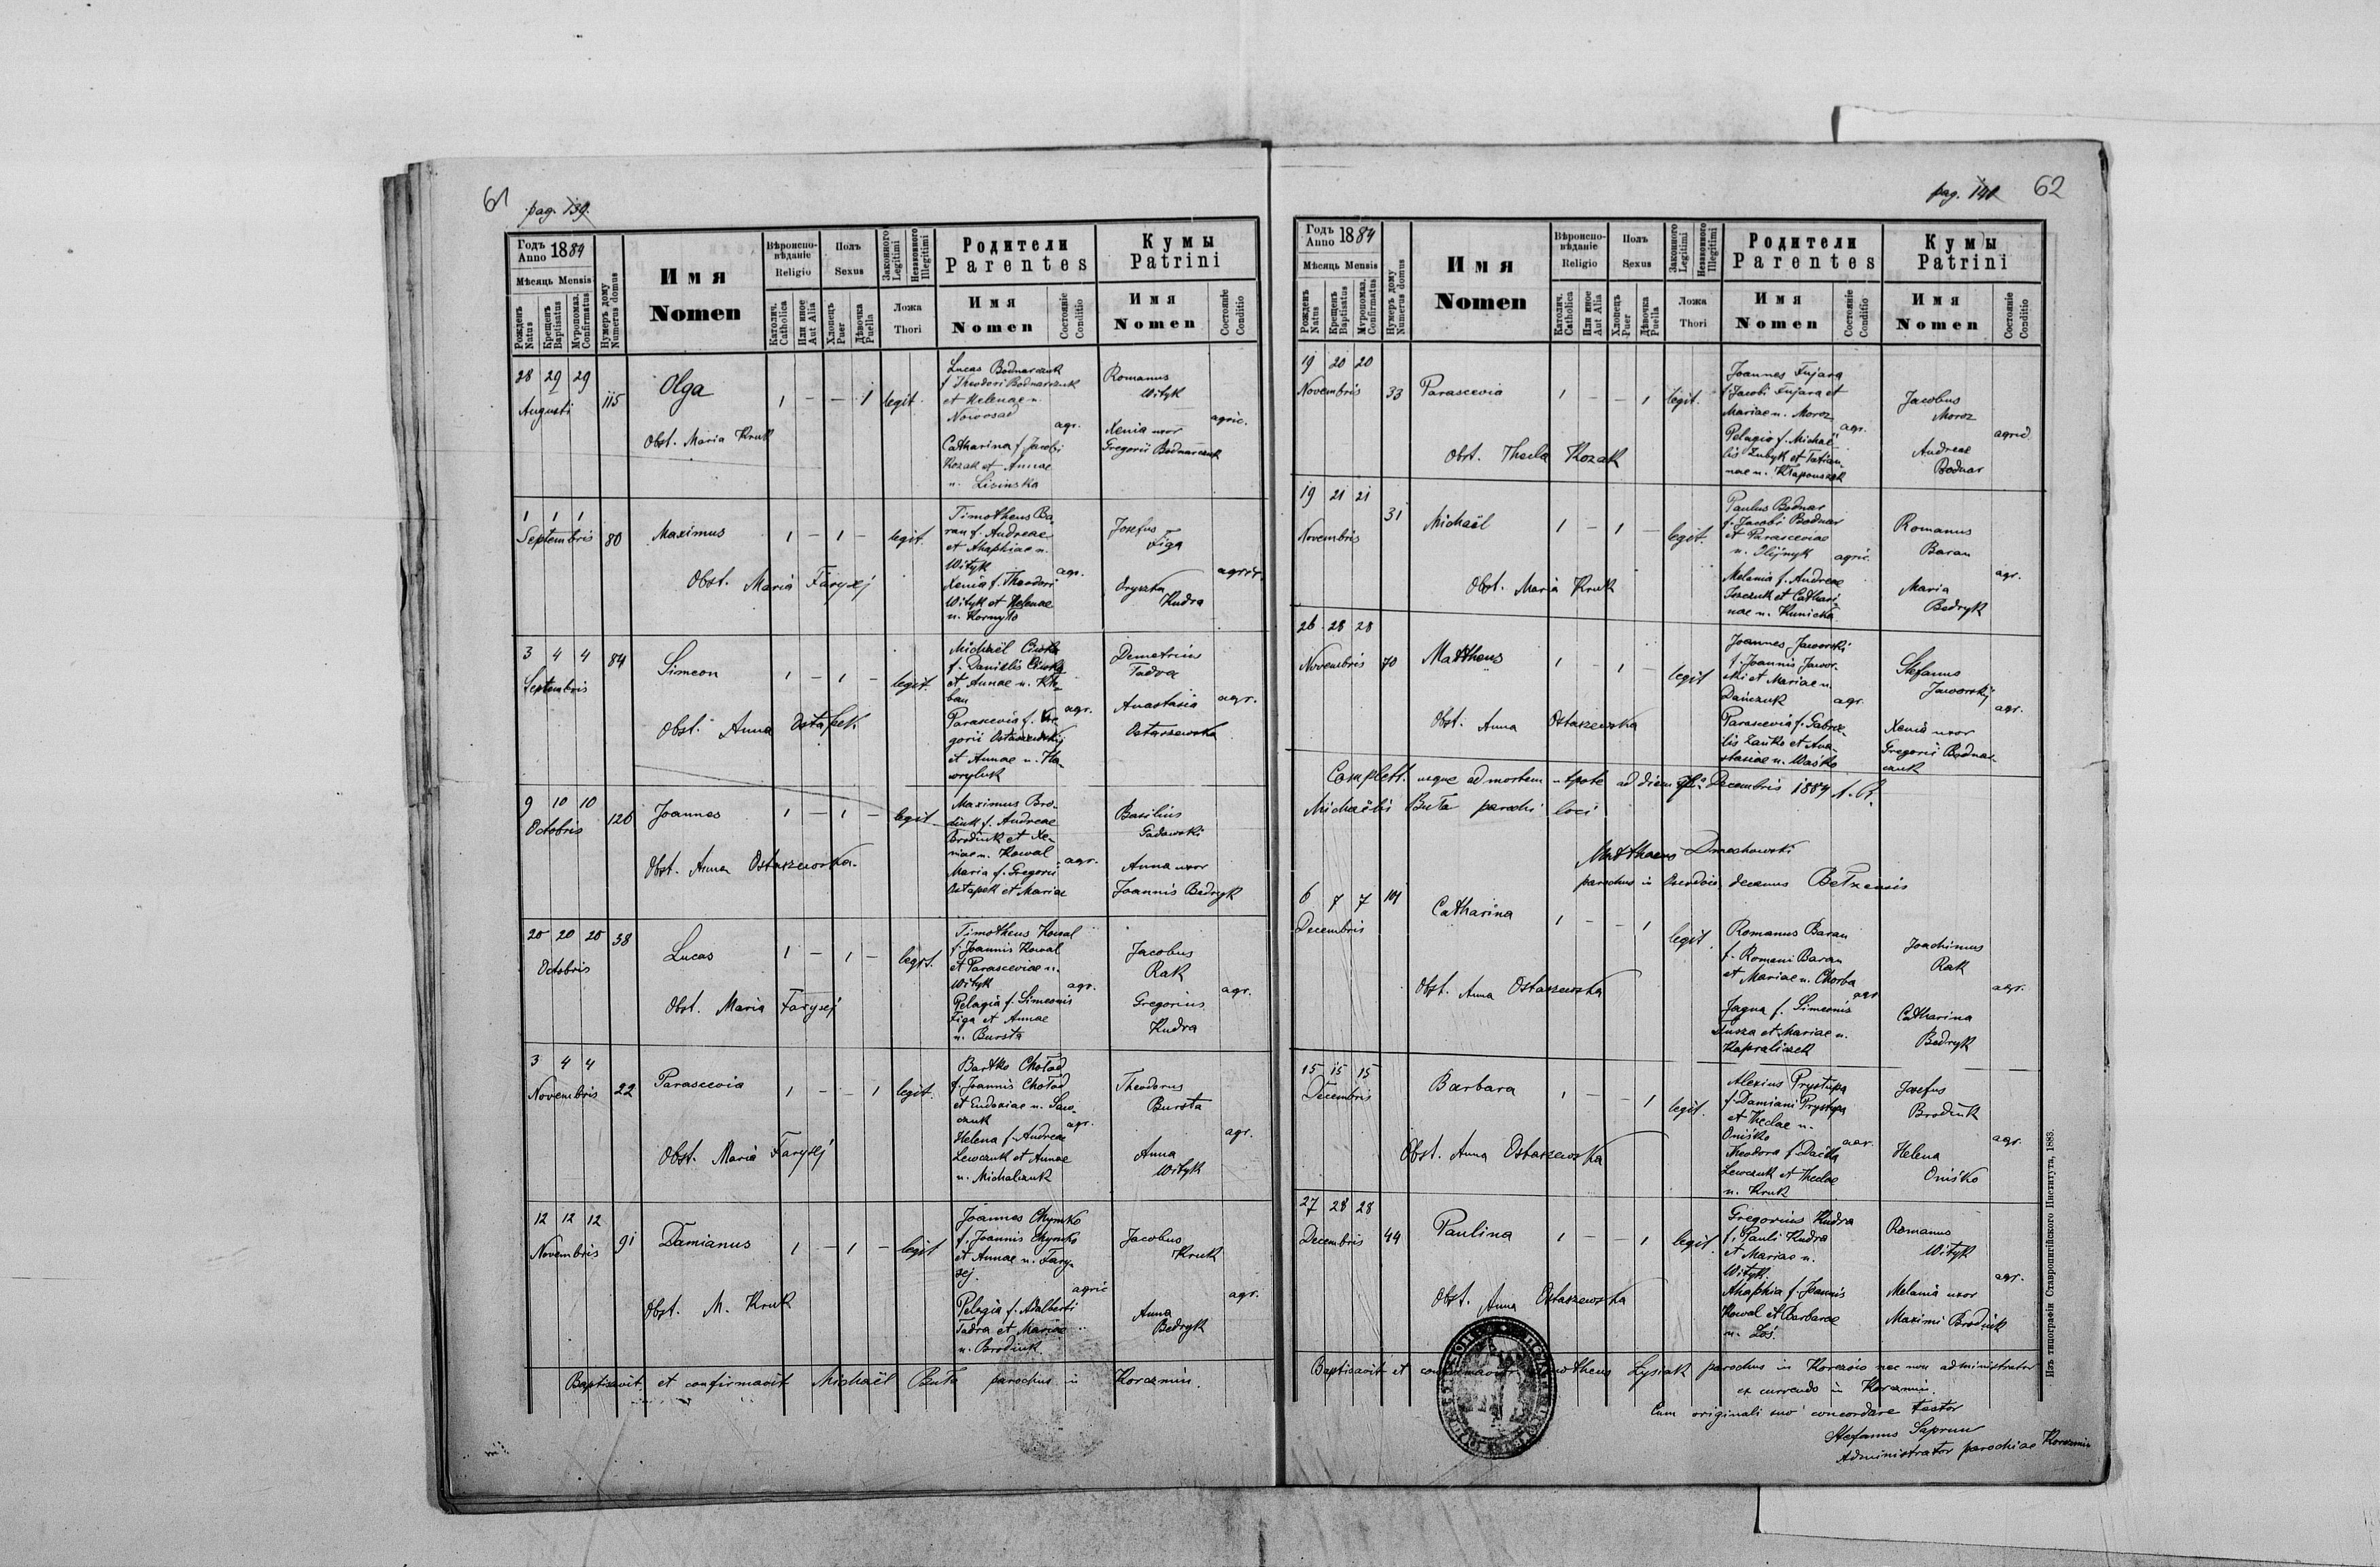 61
pag. 139.
Годъ Anno 1884
Мѣсяць Mensis
Рожденъ Natus
Крещенъ Baptisatus
Мѵропомаз. Confirmatus
Нумеръ дому Numerus domus
Имя
Nomen
Вѣроиспо-
вѣданіе
Religio
Католич. Catholica
Или иное Aut Alia
Полъ
Sexus
Хлопець Puer
Дѣвочка Puella
Законного Legitimi
Незаконного Illegitimi
Ложа
Thori
Родители
Parentes
Имя
Nomen
Состояніе Conditio
Кумы
Patrini
Имя
Nomen
Состояніе Conditio
28 29 29
Augusti
115
Olga
Obst. Maria Kruk
1 - - 1
legit.
Lucas Bodnarczuk
f. Theodori Bodnarczuk
et Helenae n.
Nowosad
agr.
Catharina f. Jacobi
Kozak et Annae
n. Lisinska
Romanus
Wityk
Xenia uxor
Gregorii Bodnarczuk
agric.
1 1 1
Septembris
80
Maximus
Obst. Maria Farysej
1 - 1 -
legit.
Timotheus Ba-
ran f. Andreae
et Ahaphiae n.
Wityk
agr.
Xenia f. Theodori
Wityk et Helenae
n. Kornyło
Josefus
Figa
Oryszka
Kudra
agric.
3 4 4
Septembris
84
Simeon
Obst. Anna Ostapek
1 - 1 -
legit.
Michaël
f. Danielis
et Annae n.
ban
agr.
Parascevia f. Gre-
gorii Ostaszewskij
et Annae n. Ha-
wryluk
Demetrius
Tadra
Anastasia
Ostaszewska
agr.
9 10 10
Octobris
126
Joannes
Obst. Anna Ostaszewska.
1 - 1 -
legit
Maximus Bro-
diuk f. Andreae
Brodiuk et Xe-
niae n. Kowal
agr.
Maria f. Gregorii
Ostapek et Mariae
Basilius
Gadowski
Anna uxor
Joannis Bedryk
20 20 20
Octobris
38
Lucas
Obst. Maria Farysej
1 - 1 -
legit.
Timotheus Kowal
f. Joannis Kowal
et Parasceviae n.
Wityk
agr.
Pelagia f. Simeonis
Figa et Annae
n. Bursta
Jacobus
Rak
Gregorius
Kudra
agr.
3 4 4
Novembris
22
Parascevia
Obst. Maria Farysej
1 - - 1
legit.
Bartko Chołod
f. Joannis Chołod
et Eudoxiae n. Saw-
czuk
agr.
Helena f. Andreae
Lewczuk et Annae
n. Michalczuk
Theodorus
Bursta
Anna
Wityk
agr.
12 12 12
Novembris
91
Damianus
Obst. M. Kruk
1 - 1 -
legit
Joannes Chymko
f. Joannis Chymko
et Annae n. Fary-
sej.
agric
Pelagia f. Adalberti
Tadra et Mariae
n. Brodiuk.
Jacobus
Kruk
Anna
Bedryk
agr.
Baptisavit et confirmavit Michaël Buła parochus in Korczmin.
pag. 140
62
Годъ Anno 1884
Мѣсяць Mensis
Рожденъ Natus
Крещенъ Baptisatus
Мѵропомаз. Confirmatus
Нумеръ дому Numerus domus
Имя
Nomen
Вѣроиспо-
вѣданіе
Religio
Католич. Catholica
Или иное Aut Alia
Полъ
Sexus
Хлопець Puer
Дѣвочка Puella
Законного Legitimi
Незаконного Illegitimi
Ложа
Thori
Родители
Parentes
Имя
Nomen
Состояніе Conditio
Кумы
Patrini
Имя
Nomen
Состояніе Conditio
19 20 20
Novembris
33
Parascevia
Obst. Thecla Kozak
1 - - 1
legit.
Joannes Fujara
f. Jacobi Fujara et
Mariae n. Moroz
agr.
Pelagia f. Michaë-
lis Zubyk et Tatian-
nae n. Kłapouszek
Jacobus
Moroz
Andreae
Bodnar
agric.
19 21 21
Novembris
31
Michaël
Obst. Maria Kruk
1 - 1 -
legit.
Paulus Bodnar
f. Jacobi Bodnar
et Parasceviae
n. Olijnyk
agric.
Melania f. Andreae
et Cathari-
nae n. Kunicka
Romanus
Baran
Maria
Bedryk
agr.
26 28 28
Novembris
70
Mattheus
Obst. Anna Ostaszewska
1 - 1 -
legit
Joannes Jaworski
f. Joannis Jawor-
ski et Mariae n.
Dańczuk
agr.
Parascevia f. Gabrie-
lis Zańko et Ana-
stasiae n. Waśko
Stefanus
Jaworskij
Xenia uxor
Gregorii Bodnar-
czuk
agr.
Complett. usque ad mortem utpote ad diem Decembris 1884 A. R.
Michaëlis Buła parochi loci
Matthaeus
parochus in decanus Bełzensis
6 7 7
Decembris
104
Catharina
Obst. Anna Ostaszewska
1 - - 1
legit.
Romanus Baran
f. Romani Baran
et Mariae n. Chorba
agr
Jagna f. Simeonis
Susza et Mariae n.
Kapraliczek
Joachimus
Rak
Catharina
Bedryk
agr.
15 15 15
Decembris
Barbara
Obst. Anna Ostaszewska
1 - - 1
legit.
Alexius Prystupa
f. Damiani Prystupa
et Theclae n.
Oniśko
agr.
Theodora f. Daniła
Lewczuk et Theclae
n. Kruk
Josefus
Brodiuk
Helena
Oniśko
agr.
27 28 28
Decembris
44
Paulina
Obst. Anna Ostaszewska
1 - - 1
legit.
Gregorius Kudra
f. Pauli Kudra
et Mariae n.
Wityk.
Ahaphia f. Joannis
Kowal et Barbarae
n. Łoś.
Romanus
Wityk
Melania uxor
Maximi Brodiuk
agr.
Baptisavit et Lysiak parochus in nec non administrator
ex currendo in Korczmin.
Cum originali suo concordare testor
Stefanus Saprun
Administrator parochiae Korczmin
Изъ типографіи Ставропигійского Института, 1883.